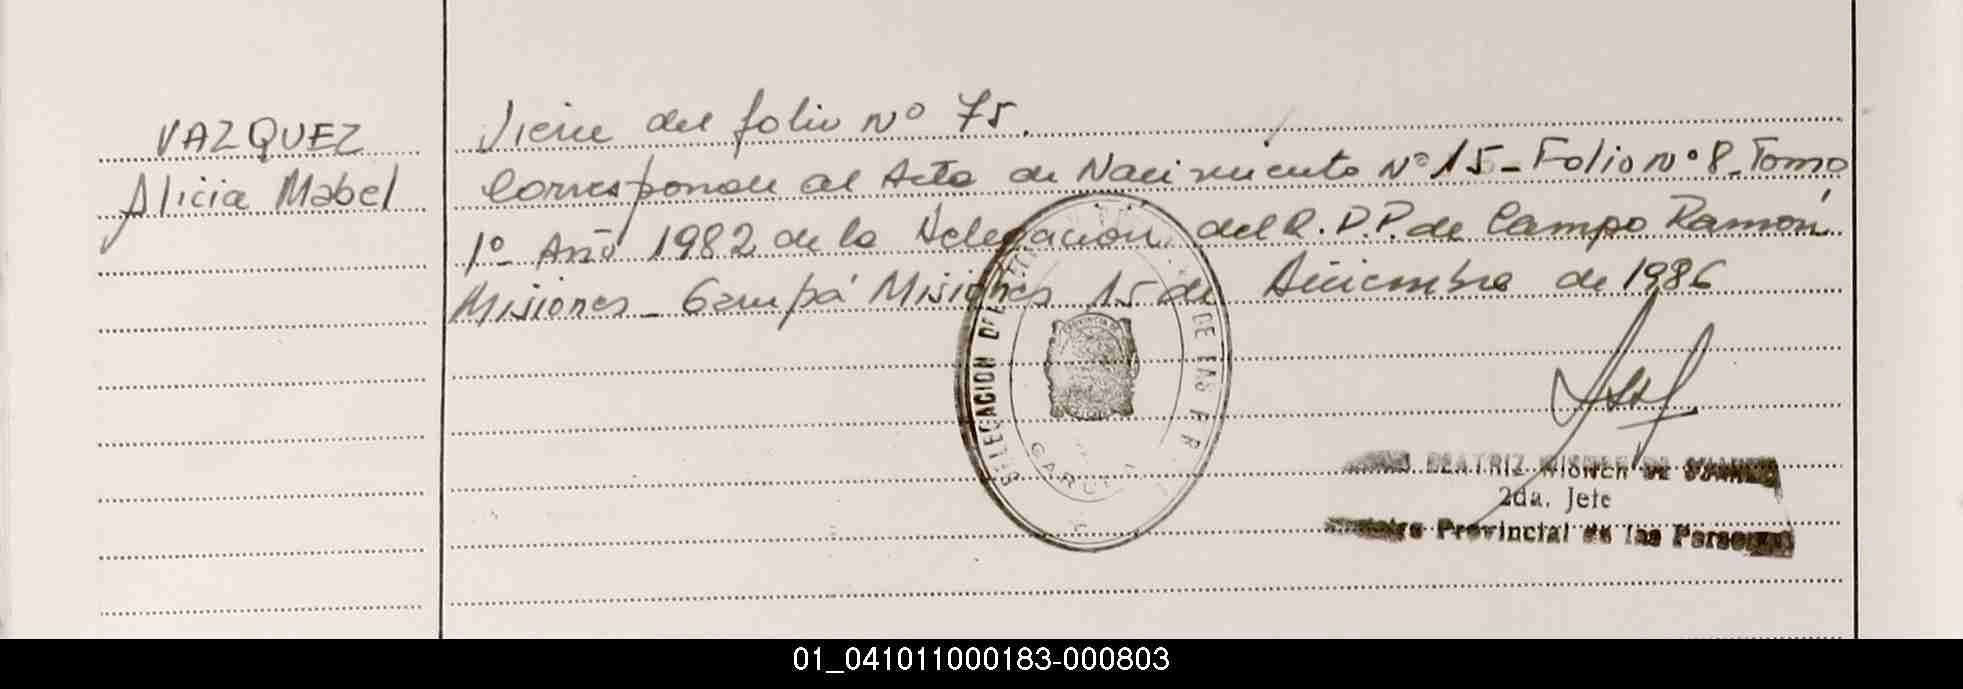 VAZQUEZ
Alicia Mabel
Viene del folio Nº 75.
Corresponde al Acta de Nacimiento Nº 15 - Folio Nº 8. Tomo
1º Año 1982 de la Delegación del R.P.P. de Campo Ramón
Misiones - Garupá Misiones 15 de Diciembre de 1986
DELEGACION DE DE LAS
GARU
BEATRIZ DE
2da. Jefe
Provincial de las Personas
01_041011000183-000803